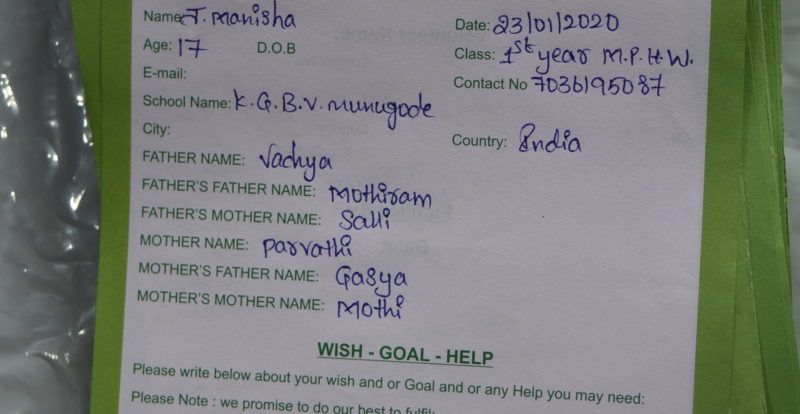 Name: J. Manisha Date: 23/01/2020
Age: 17 D.O.B Class: 1st year M.P.H.W.
E-mail: Contact No 7036195087
School Name: K.G.B.V. munugode
City: Country: India
FATHER NAME: Vachya
FATHER'S FATHER NAME: Mothiram
FATHER'S MOTHER NAME: Salli
MOTHER NAME: parvathi
MOTHER'S FATHER NAME: Gasya
MOTHER'S MOTHER NAME: Mothi
WISH - GOAL - HELP
Please write below about your wish and or Goal and or any Help you may need:
Please Note : we promise to do our best to fulfil